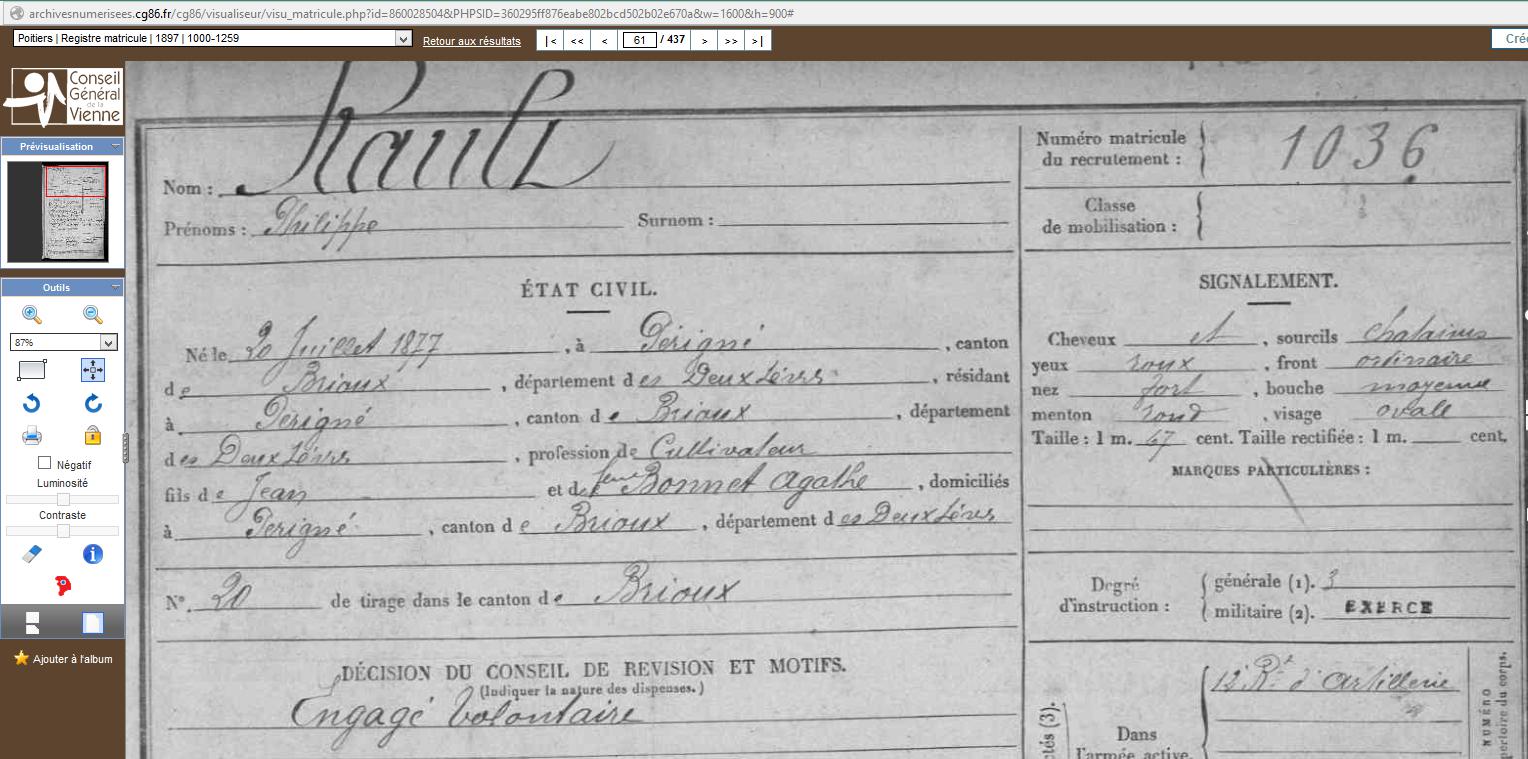 archivesnumerisees.cg86.fr/cg86/visualiseur/visu_matricule.php?id=860028504&PHPSID=360295ff876eabe802bcd502b02e670a&w=1600&h=900#
Poitiers | Registre matricule | 1897 | 1000-1259
Retour aux résultats
|< << < 61 / 437 > >> >|
Cré
Conseil
Général
de la
Vienne
Prévisualisation
Outils
87%
Négatif
Luminosité
Contraste
Ajouter à l'album
Nom : Rault
Prénoms : Philippe Surnom :
Numéro matricule
du recrutement : 1036
Classe
de mobilisation :
ÉTAT CIVIL.
Né le 20 Juillet 1877, à Périgné, canton
de Brioux, département des Deux Sèvres, résidant
à Périgné, canton de Brioux, département
des Deux Sèvres, profession de Cultivateur
fils de Jean et de feue Bonnet Agathe, domiciliés
à Périgné, canton de Brioux, département des Deux Sèvres
N°. 20 de tirage dans le canton de Brioux
DÉCISION DU CONSEIL DE REVISION ET MOTIFS.
(Indiquer la nature des dispenses.)
Engagé Volontaire
SIGNALEMENT.
Cheveux et, sourcils chatains
yeux roux, front ordinaire
nez fort, bouche moyenne
menton rond, visage ovale
Taille : 1 m. 67 cent. Taille rectifiée : 1 m. cent.
MARQUES PARTICULIÈRES :
Degré
d'instruction :
générale (1). 3
militaire (2). EXERCE
12 Rt d'artillerie
Dans
l'armée active.
NUMÉRO
du corps.